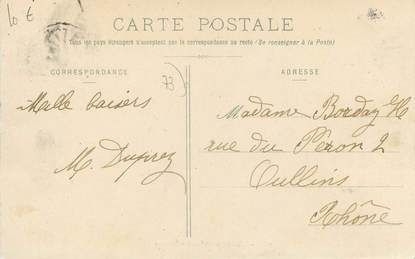 10 €
CARTE POSTALE
Tous les pays étrangers n'acceptent pas la correspondance au recto (Se renseigner à la Poste)
CORRESPONDANCE
ADRESSE
33
Mille baisers
M. Duprez
Madame Borday H
rue du Péron 2
Oullins
Rhône